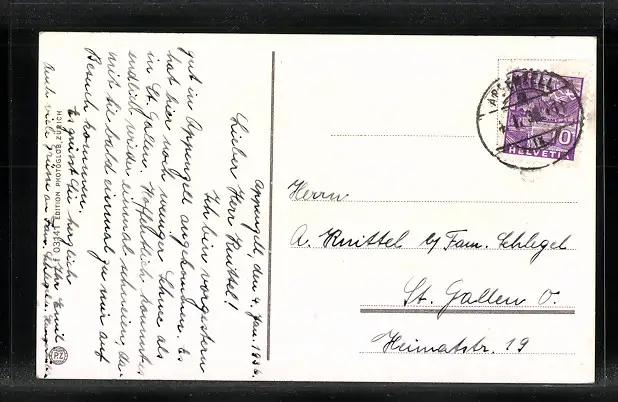 Appenzell, den 4. Jan. 1936.
Lieber Herr Knittel!
Ich bin vorgestern
gut in Appenzell angekommen. Es
hat hier noch weniger Schnee als
in St. Gallen. Hoffentlich kommt es
endlich wieder einmal schneien, da-
mit Sie bald einmal zu mir auf
Besuch kommen.
Es grüsst Sie herzlich
Ihr Emil
Auch viele Grüsse an Fam. Schlegel
EDITION PHOTOGLOB, ZÜRICH
PZ
APPENZELL
10
HELVETIA
Herrn
A. Knittel b/ Fam. Schlegel
St. Gallen O.
Heimatstr. 19